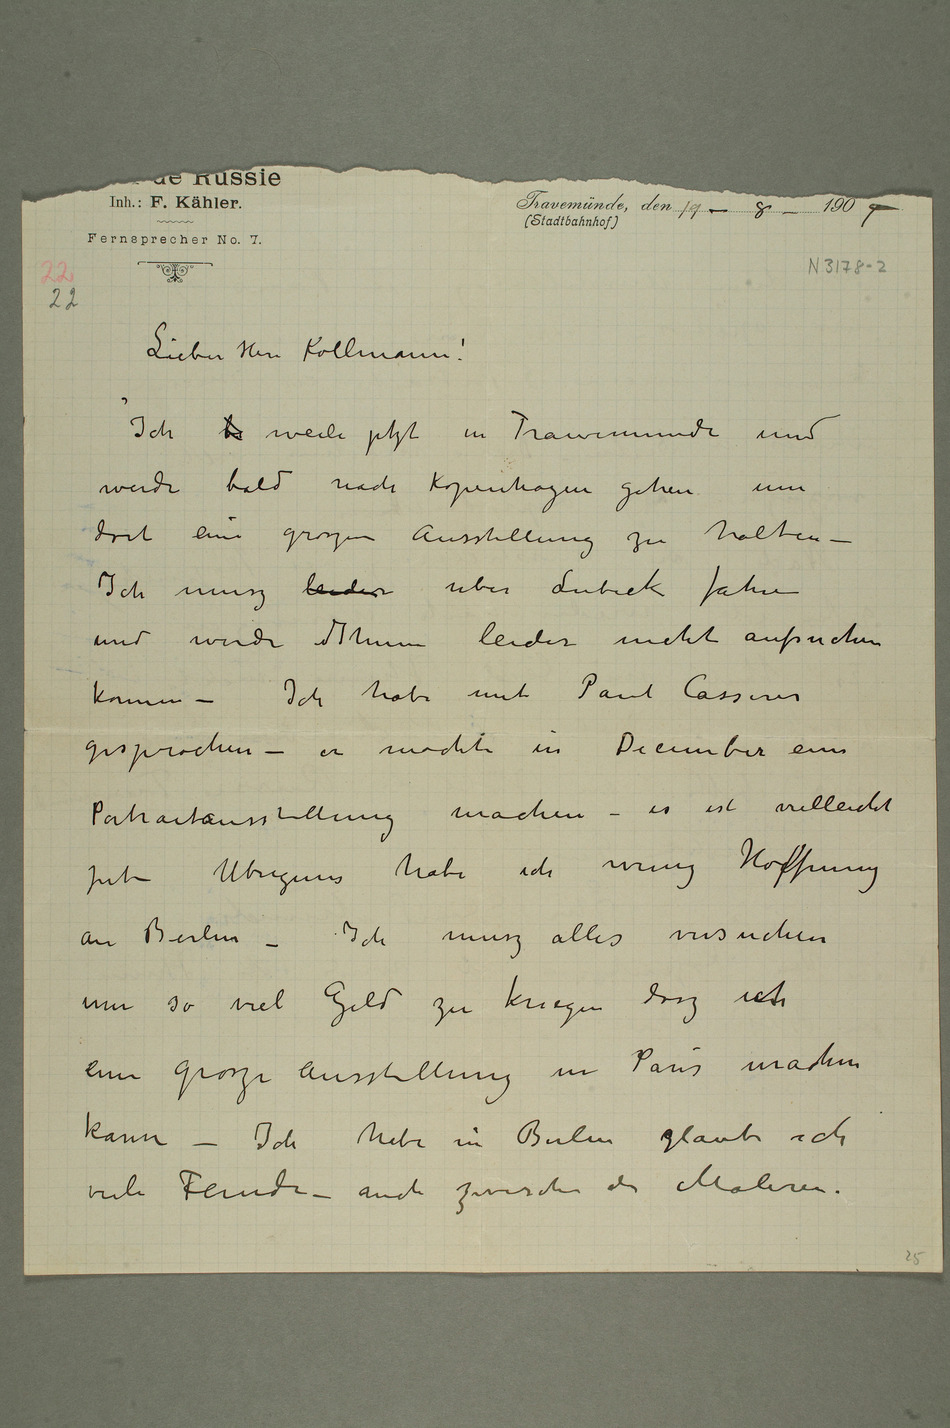 de Russie
Inh.: F. Kähler.
Fernsprecher No. 7.
Travemünde, den 19 – 8 – 190
(Stadtbahnhof)
22
22
N 3178-2
Lieber Herr Kollmann!
Ich weile jetzt in Travemunde und
werde bald nach Kopenhagen gehen um
dort eine grosze Ausstellung zu halten –
Ich musz leider uber Lubeck fahre
und werde Ihnen leider nicht aufsuchen
konnen – Ich habe mit Paul Cassirer
gesprochen – er mochte in December eine
Portraitausstellung machen – es ist vielleicht
gut – Ubrigens habe ich wenig Hoffnung
an Berlin – Ich musz alles versuchen
um so viel Geld zu kriegen dasz ich
eine grosze Ausstellung in Paris machen
kann – Ich habe in Berlin glaube ich
viele Feinde – auch zwischen de Maleren.
25